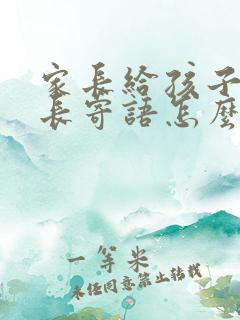 家长给孩子
长寄語怎麽
一等米
未经同意禁止转载